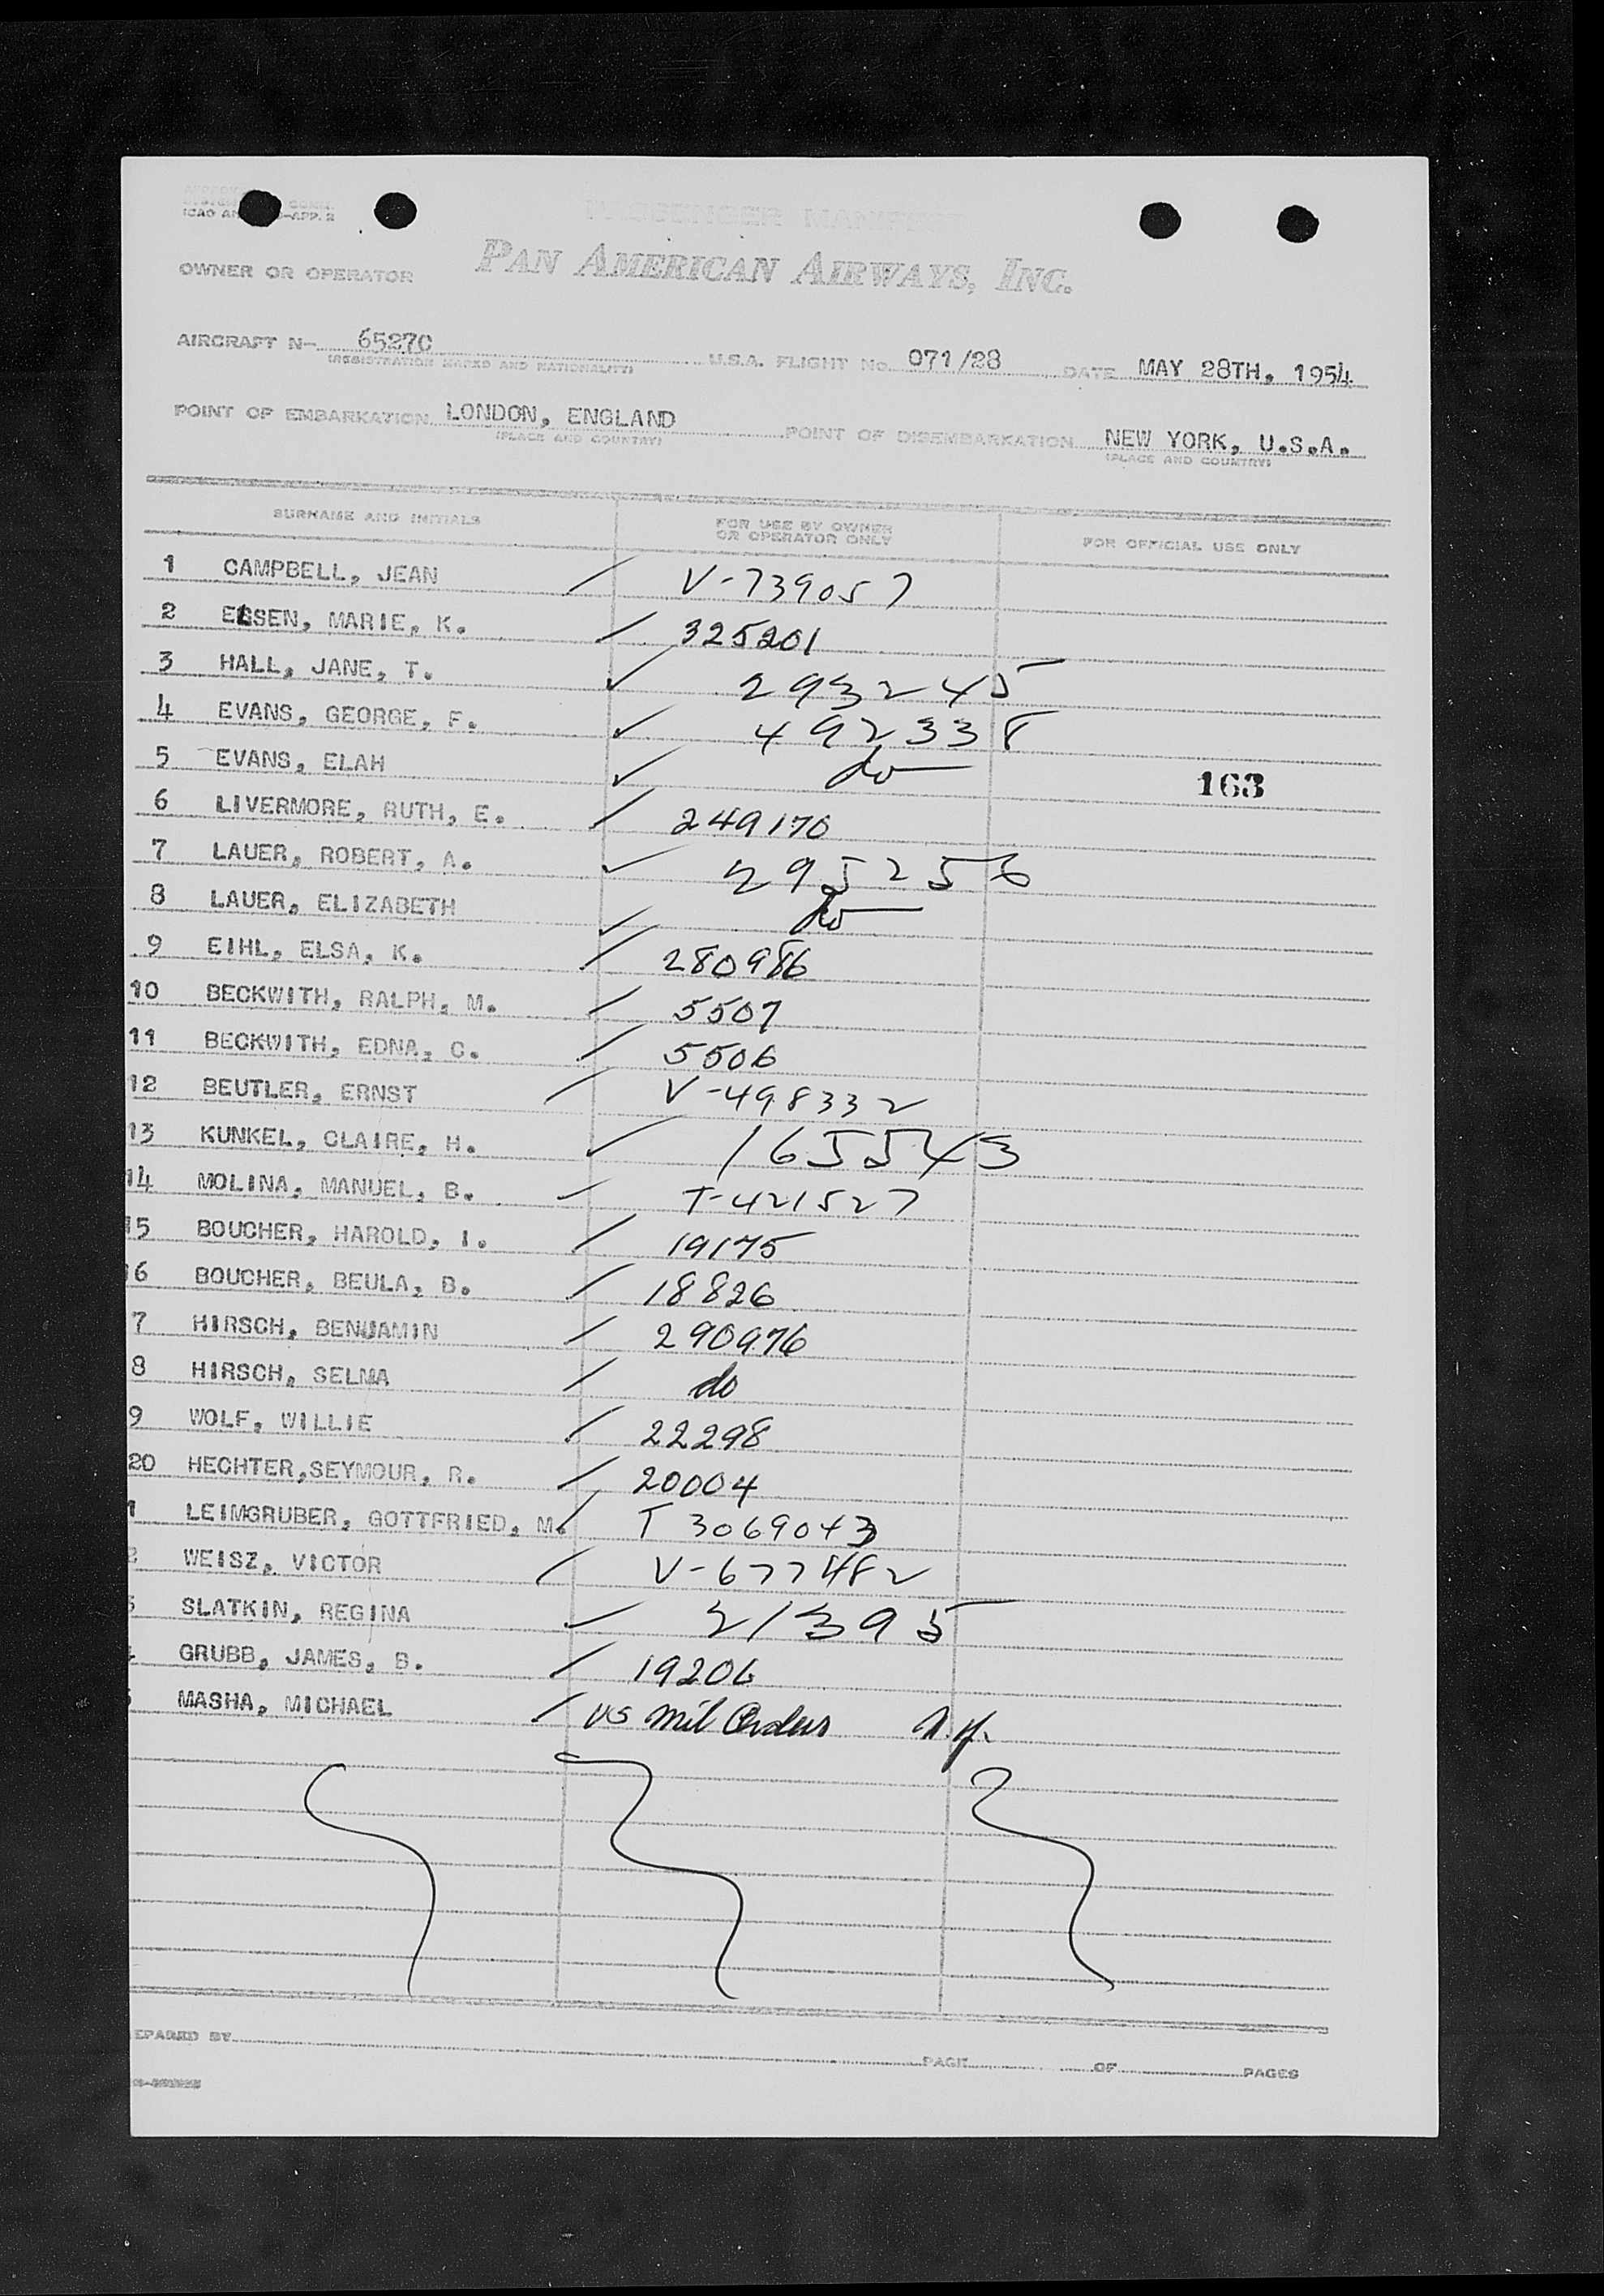 ICAO AN
-APP. 2
PASSENGER MANIFEST
OWNER OR OPERATOR PAN AMERICAN AIRWAYS, INC.
AIRCRAFT N- 6527C U.S.A. FLIGHT No. 071/28 DATE MAY 28TH, 1954
(REGISTRATION MARKS AND NATIONALITY)
POINT OF EMBARKATION LONDON, ENGLAND POINT OF DISEMBARKATION NEW YORK, U.S.A.
(PLACE AND COUNTRY) (PLACE AND COUNTRY)
SURNAME AND INITIALS FOR USE BY OWNER OR OPERATOR ONLY FOR OFFICIAL USE ONLY
1 CAMPBELL, JEAN / V-739057
2 ELSEN, MARIE, K. / 325201
3 HALL, JANE, T. ✓ 293245
4 EVANS, GEORGE, F. ✓ 492338
5 EVANS, ELAH ✓ do
163
6 LIVERMORE, RUTH, E. / 249170
7 LAUER, ROBERT, A. ✓ 295256
8 LAUER, ELIZABETH ✓ do
9 EIHL, ELSA, K. / 280986
10 BECKWITH, RALPH, M. / 5507
11 BECKWITH, EDNA, C. / 5506
12 BEUTLER, ERNST / V-498332
13 KUNKEL, CLAIRE, H. ✓ 165543
14 MOLINA, MANUEL, B. ✓ T-421527
15 BOUCHER, HAROLD, I. / 19175
16 BOUCHER, BEULA, B. / 18826
7 HIRSCH, BENJAMIN / 290976
8 HIRSCH, SELMA / do
9 WOLF, WILLIE / 22298
20 HECHTER,SEYMOUR, R. / 20004
1 LEIMGRUBER, GOTTFRIED, M. / T 3069043
2 WEISZ, VICTOR / V-677482
SLATKIN, REGINA ✓ 21395
GRUBB, JAMES, B. / 19206
MASHA, MICHAEL / US Mil Orders n.y.
EPARED BY PAGE OF PAGES